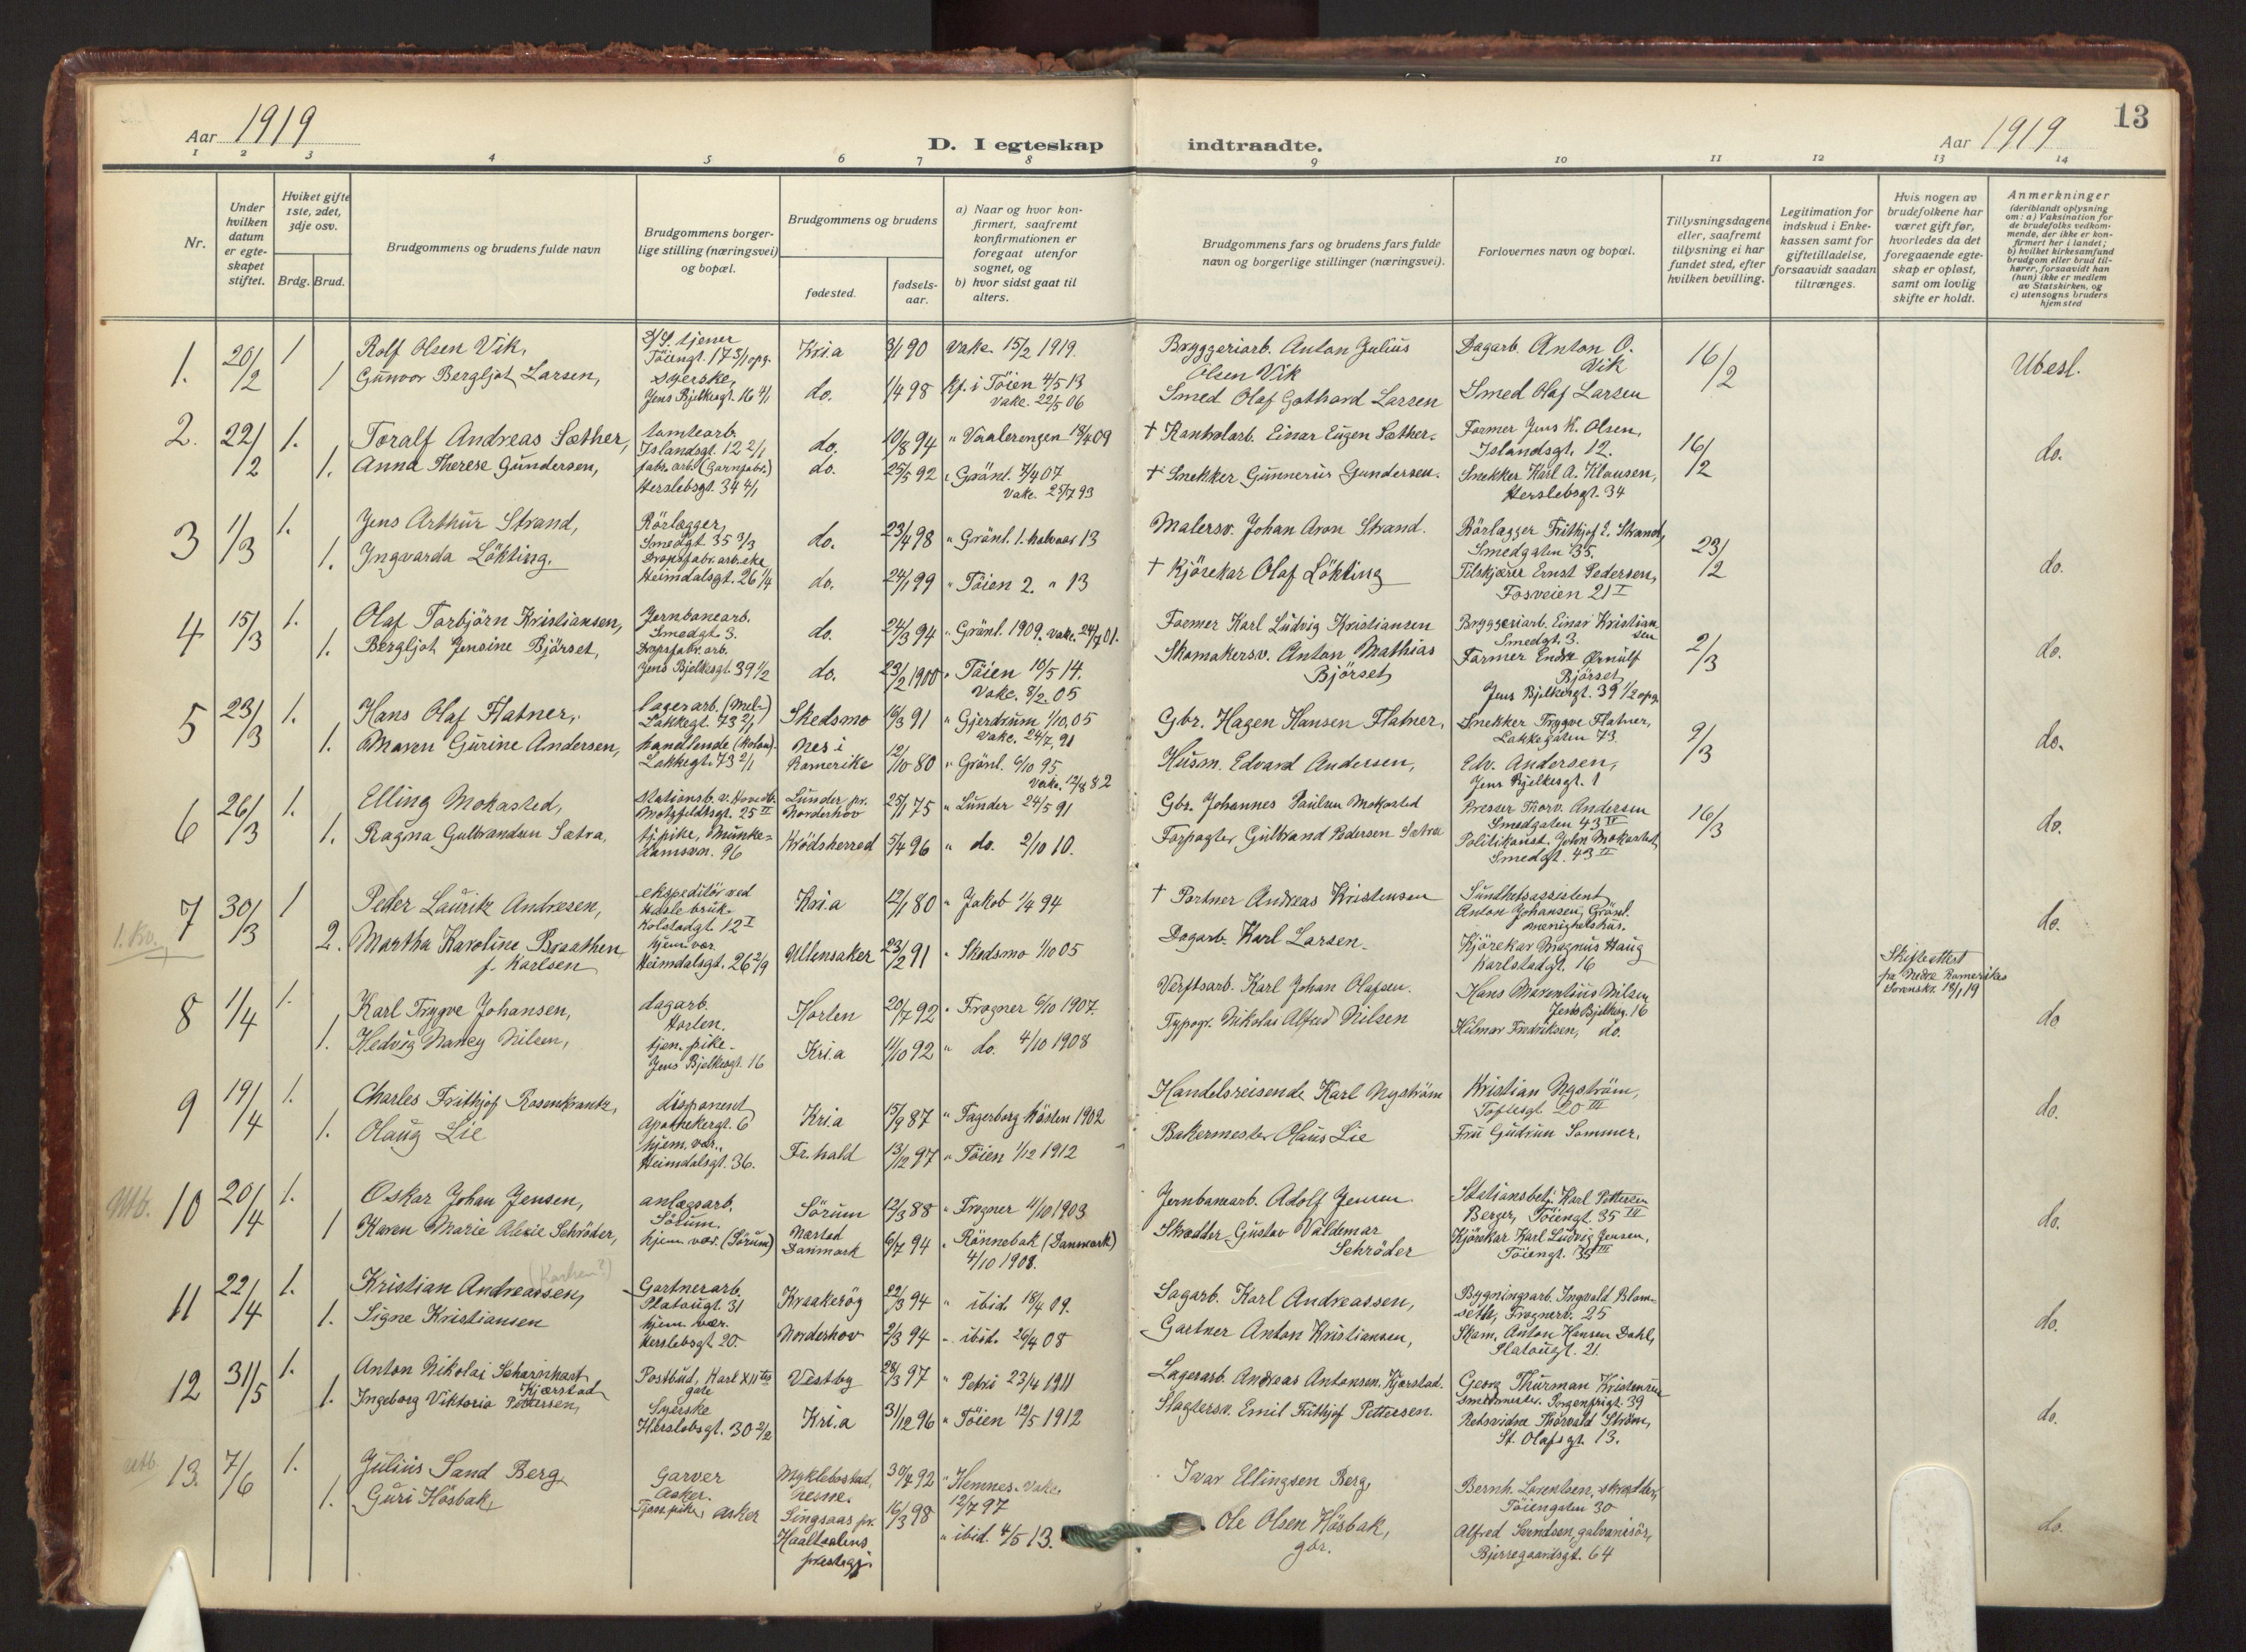 13
Aar 1919
D. I egteskap indtraadte.
Aar 1919
1 2 3 4 5 6 7 8 9 10 11 12 13 14
Nr.
Under hvilken datum er egteskapet stiftet.
Hviket gifte 1ste, 2det, 3dje osv.
Brdg. Brud.
Brudgommens og brudens fulde navn
Brudgommens borgerlige stilling (næringsvei) og bopæl.
Brudgommens og brudens
fødested.
fødselsaar.
a) Naar og hvor konfirmert, saafremt konfirmationen er foregaat utenfor sognet, og
b) hvor sidst gaat til alters.
Brudgommens fars og brudens fars fulde navn og borgerlige stillinger (næringsvei).
Forlovernes navn og bopæl.
Tillysningsdagene eller, saafremt tillysning ei har fundet sted, efter hvilken bevilling.
Legitimation for indskud i Enkekassen samt for giftetilladelse, forsaavidt saadan tiltrænges.
Hvis nogen av brudefolkene har været gift før, hvorledes da det foregaaende egteskap er opløst, samt om lovlig skifte er holdt.
Anmerkninger
(deriblandt oplysning om: a) Vaksination for de brudefolks vedkommende, der ikke er konfirmert her i landet; b) hvilket kirkesamfund brudgom eller brud tilhører, forsaavidt han (hun) ikke er medlem av Statskirken, og c) utensogns bruders hjemsted
1. 20/2 1 Rolf Olsen Vik, tjener Töiengt. 17 3/1 opg. Kri.a 3/1 90 Vakc. 15/2 1919. Bryggeriarb. Anton Julius Olsen Vik Dagarb. Anton O. Vik 16/2 Ubesl.
1 Gunvor Bergljot Larsen, Syerske, Jens Bjelkesgt. 16 4/1 do. 1/4 98 Kf. i Töien 4/5 13 Vakc. 22/5 06 Smed Olaf Gothard Larsen Smed Olaf Larsen
2. 22/2 1. Toralf Andreas Sæther, tomtearb. Islandsgt. 12 2/1 do. 10/8 94 " Vaalerengen 18/4 09 † Einar Eugen Sæther. Former Jens K. Olsen, Islandsgt. 12. 16/2 do.
1. Anna Therese Gundersen, fabr. arb. (Garnfabr.) Herslebsgt. 34 4/1 do. 25/5 92 " Grönl. 7/4 07 Vakc. 25/7 93 † Snekker Gunnerius Gundersen. Snekker Karl A. Klausen, Herslebsgt. 34
3 1/3 1. Jens Arthur Strand, Rörlægger, Smedgt. 35 3/3 do. 23/4 98 " Grönl. 1. halvaar 13 Malersv. Johan Aron Strand. Rörlægger Frithjof L. Strand, Smedgaten 35. 23/2 do.
1. Ingvarda Lökting. Dropsfabr. arb.ske Heimdalsgt. 26 1/4 do. 24/1 99 " Töien 2. " 13 † Kjörekar Olaf Lökting Tilskjærer Ernst Pedersen, Fosveien 21 I
4 15/3 1. Olaf Torbjörn Kristiansen, Jernbanearb. Smedgt. 3. do. 24/3 94 " Grönl. 1909. Vakc. 24/7 01. Former Karl Ludvig Kristiansen Bryggeriarb. Einar Kristiansen Smedgt. 3. 2/3 do.
1. Bergljot Jensine Björset, Dropsfabr. arb. Jens Bjelkesgt. 39 1/2 do. 23/2 1900 " Töien 10/5 14. Vakc. 8/2 05 Skomakersv. Anton Mathias Björset Former Endre Ørnulf Björset, Jens Bjelkesgt. 39 1/2 opg.
5 23/3 1. Hans Olaf Flatner, lagerarb. (Mel-) Lakkegt. 73 2/1 Skedsmo 16/3 91 " Gjerdrum 1/10 05 Vakc. 24/7 91 Gbr. Hagen Hansen Flatner, Snekker Trygve Flatner, Lakkegaten 73. 9/3 do.
1. Maren Gurine Andersen, handlende (Kolon). Lakkegt. 73 2/1 Nes i Romerike 12/10 80 " Grönl. 6/10 95 Vakc. 12/8 82 Husm. Edvard Andersen, Edv. Andersen, Jens Bjelkesgt. 1
6 26/3 1. Elling Mokasted, Stationsb. v. Hovedb. Motzfeldtsgt. 25 II Lunder pr. Norderhov 25/1 75 " Lunder 24/5 91 Gbr. Johannes Paulsen Mokasted Presser Thorv. Andersen Smedgaten 43 IV 16/3 do.
1. Ragna Gulbrandsen Sætra, tj. pike, Munkedamsvn. 96 Krödsherred 5/4 96 " do. 2/10 10. Forpagter Gulbrand Pedersen Sætra Politikonst. John Mokasted, Smedgt. 43 II
1. Kv.
7 30/3 1 Peder Lauritz Andresen, ekspeditör ved Hasle bruk. Kolstadgt. 12 I Kri.a 12/1 80 " Jakob 1/4 94 † Portner Andreas Kristensen Sundhetsassistent Anton Johansen, Grönl. menighetshus. do.
2. Martha Karoline Braathen f. Karlsen hjem. vær. Heimdalsgt. 26 2/9 Ullensaker 23/2 91 " Skedsmo 1/10 05 Dagarb. Karl Larsen. Kjörekar Magnus Haug Karlstadgt. 16 Skifteattest fra Nedre Romerikes Sorenskr. 18/1 19
8 1/4 1. Karl Trygve Johansen, dagarb. Horten. Horten 20/7 92 " Frogner 6/10 1907. Verftsarb. Karl Johan Olafsen. Hans Marentius Nilsen Jens Bjelkesg. 16 do
1. Hedvig Nancy Nilsen, tjen. pike. Jens Bjelkesgt. 16 Kri.a 11/10 92 " do. 4/10 1908 Typogr. Nikolai Alfred Nilsen Hilmar Fredriksen, do.
9 19/4 1. Charles Frithjof Rosenkrantz, disponent Apothekergt. 6 Kri.a 15/9 87 " Fagerborg hösten 1902 Handelsreisende Karl Nyström Kristian Nyström, Toftesgt. 20 III do.
1. Olaug Lie hjem. vær., Heimdalsgt. 36. Fr.hald 13/12 97 " Töien 1/12 1912 Bakermester Olaus Lie Fru Gudrun Sommer.
Utb. 10 20/4 1. Oskar Johan Jensen, anlægsarb. Sörum. Sörum 12/3 88 " Frogner 11/10 1903 Jernbanearb. Adolf Jensen Stationsbetj. Karl Pettersen Berger, Töiengt. 35 III do.
1 Karen Marie Alexie Schröder, hjem. vær. (Sörum) Næstved Danmark 6/7 94 " Rönnebæk (Danmark) 4/10 1908. Skrædder Gustav Valdemar Schröder Kjörekar Karl Ludvig Jensen, Töiengt. 35 III
11 22/4 1. Kristian Andreassen, Gartnerarb. Platougt. 31 Kraakeröy 22/3 94 " ibid. 18/4 09. Sagarb. Karl Andreassen, Bygningsarb. Ingvald Blomseth, Frognerv. 25 do.
1. Signe Kristiansen hjem. vær. Herslebsgt. 20. Norderhov 2/3 94 " ibid. 26/4 08 Gartner Anton Kristiansen, Skom. Anton Hansen Dahl, Platougt. 21.
12 31/5 1. Anton Nikolai Scharnhart Kjærstad Postbud, Karl XII tes gate Vestby 28/3 97 " Petri 23/4 1911 Lagerarb. Andreas Antonsen Kjærstad. Georg Thurman Kristensen Smedmester. Sorgenfrigt. 39 do.
1. Ingeborg Viktoria Pettersen, Syerske Herslebsgt. 30 2/2 Kri.a 31/12 96 " Töien 12/5 1912 Slagtersv. Emil Frithjof Pettersen. Retsvidne Thorvald Ström, St. Olafsgt. 13.
utb. 13. 7/6 1. Julius Sand Berg Garver Asker. Myklebostad, Nesne. 30/7 92 " Hemnes. Vakc. 12/7 97 Ivar Ellingsen Berg, Bernh. Lorentsen, skrædder, Töiengaten 30 do.
1. Guri Hösbak, Tjen. pike, Asker Singsaas pr. Haaltaalens prestegj. 16/3 98 " ibid. 4/5 13. Ole Olsen Hösbak, gbr. Alfred Svendsen, galvanisör, Bjerregaardsgt. 64